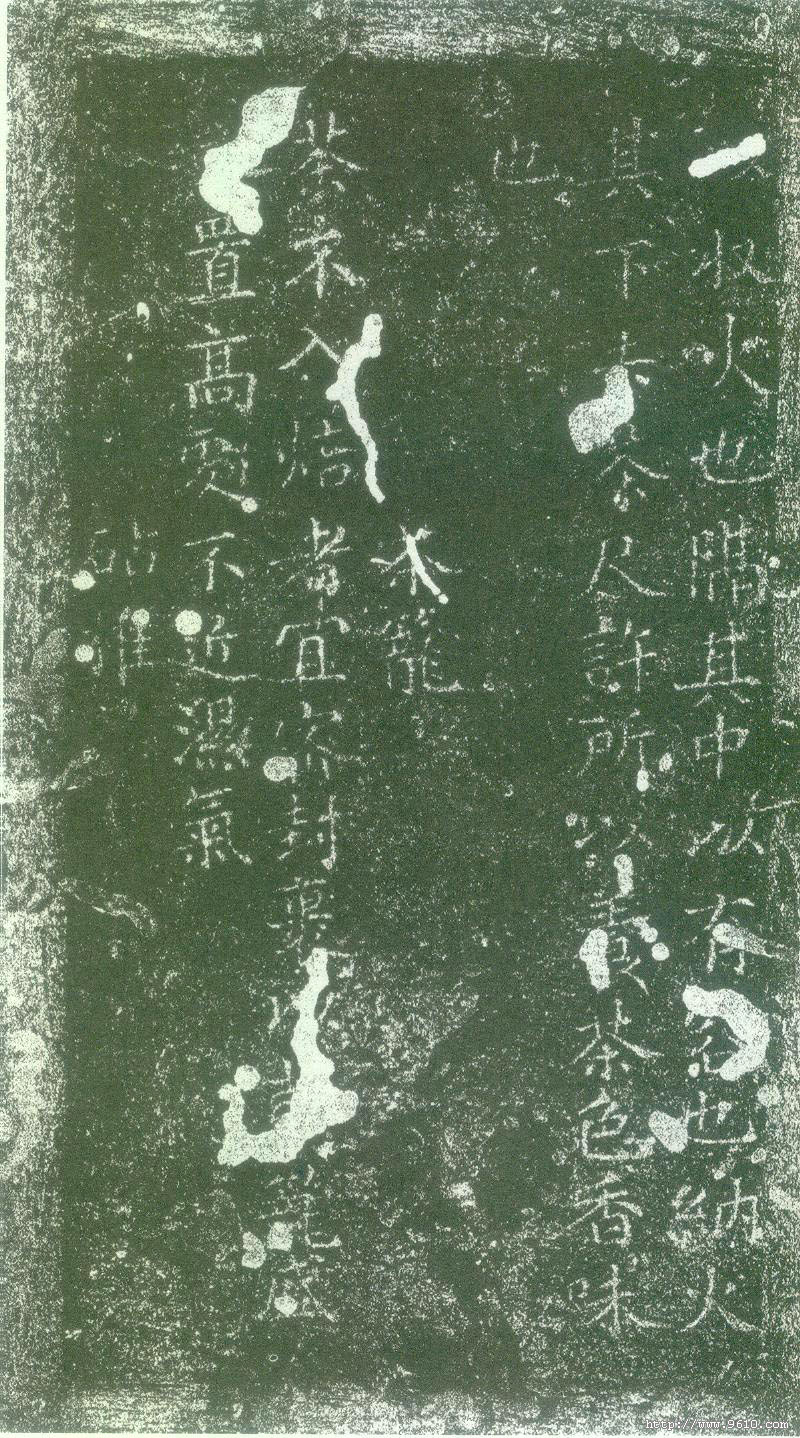 収火也隔其中以有容也納火
其下去茶尺許所以養茶色香味
也
茶籠
茶不入焙者宜密封裹以籠盛
置高處不近濕氣
砧椎
http://www.9610.com